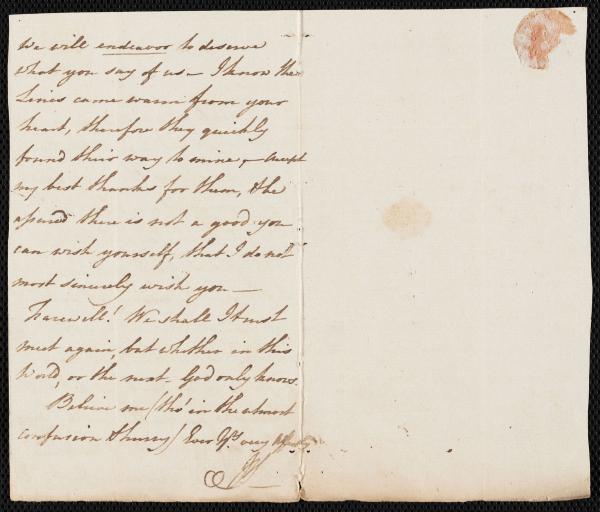 We will endeavor to deserve
what you say of us - I know the
Lines came warm from your
heart, therefore they quickly
found their way to mine, - accept
my best thanks for them, & be
assured there is not a good you
can wish yourself, that I do not
most sincerely wish you —
Farewell! We shall I trust
meet again, but whether in this
World, or the next - God only knows.
Believe me (tho' in the utmost
confusion & hurry) Ever Yrs. very